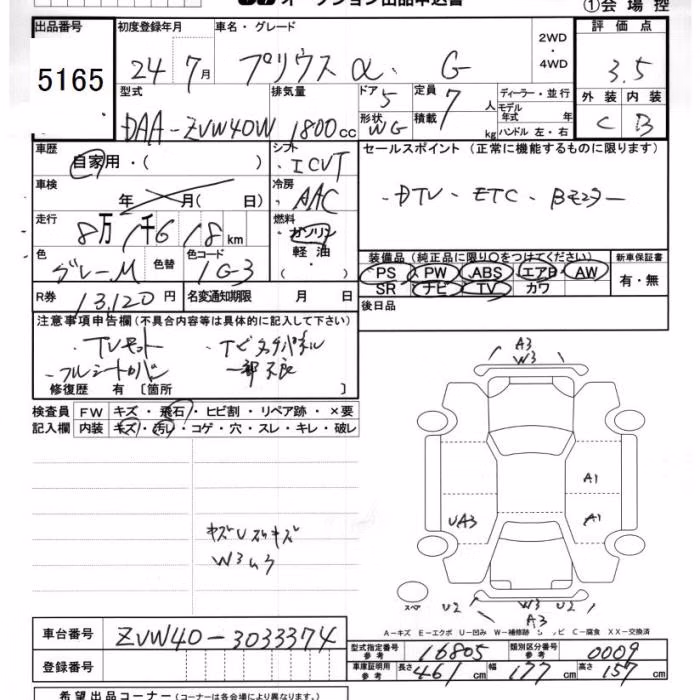 オークション出品申込書
①会場控
出品番号 初度登録年月 車名・グレード 2WD・4WD 評価点
5165 24 7月 プリウス α G 3.5
型式 排気量 ドア 5 定員 7人 ディーラー・並行
モデル年式 年 外装 内装
DAA-ZVW40W 1800cc 形状 WG 積載 kg ハンドル 左・右 C B
車歴 自家用・( ) シフト ICVT セールスポイント (正常に機能するものに限ります)
車検 年 月( 日) 冷房 AAC ・DTV・ETC・Bモニター
走行 8万1千618km 燃料 ガソリン・軽油・
色 グレーM 色替 色コード 1G3 装備品 (純正品に限り○をつけてください) 新車保証書
PS PW ABS エアB AW 有・無
SR ナビ TV カワ
R券 13,120円 名変通知期限 月 日 後日品
注意事項申告欄 (不具合内容等は具体的に記入して下さい)
・TVキット ・ナビタッチパネル
・フルシートカバー 一部不良
修復歴 有 〔箇所 〕
検査員 FW キズ・飛石・ヒビ割・リペア跡・×要
記入欄 内装 キズ・汚レ・コゲ・穴・スレ・キレ・破レ
A3
W3
A1
A1
UA3
キズUスリキズ
W3ムラ
スペア U2 W3 U2
A3
A-キズ E-エクボ U-凹み W-補修跡 S-サビ C-腐食 XX-交換済
車台番号 ZVW40-3033374
型式指定番号 参考 16805 類別区分番号 参考 0009
登録番号
車庫証明用 参考 長さ 461cm 幅 177cm 高さ 157cm
希望出品コーナー (コーナーは各会場により異なります。)